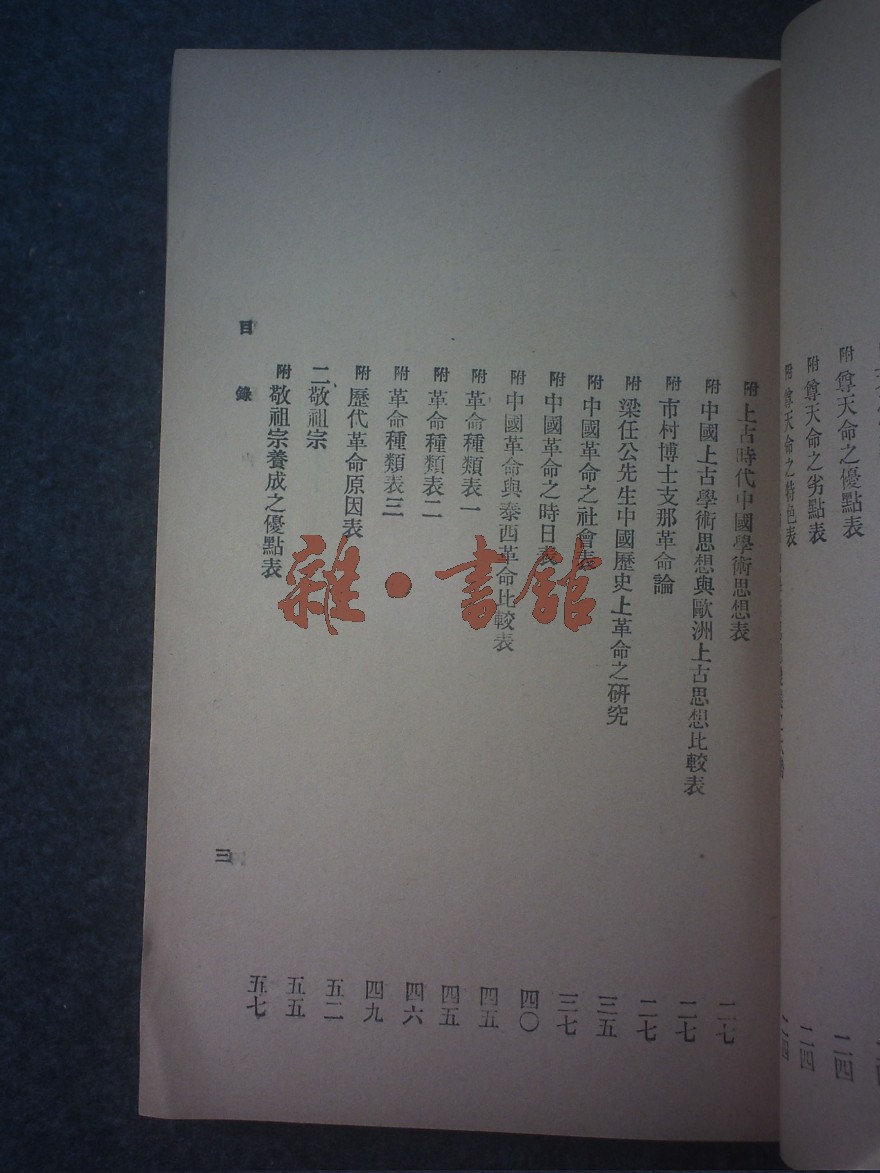 附 尊天命之優點表 二四
附 尊天命之劣點表 二四
附 尊天命之特色表 二四
附 上古時代中國學術思想表 二七
附 中國上古學術思想與歐洲上古思想比較表 二七
附 市村博士支那革命論 二七
附 梁任公先生中國歷史上革命之研究 三五
附 中國革命之社會表 三七
附 中國革命之時日表 四〇
附 中國革命與泰西革命比較表 四五
附 革命種類表一 四五
附 革命種類表二 四六
附 革命種類表三 四九
附 歷代革命原因表 五二
二、敬祖宗 五五
附 敬祖宗養成之優點表 五七
目錄 三
雜·書館